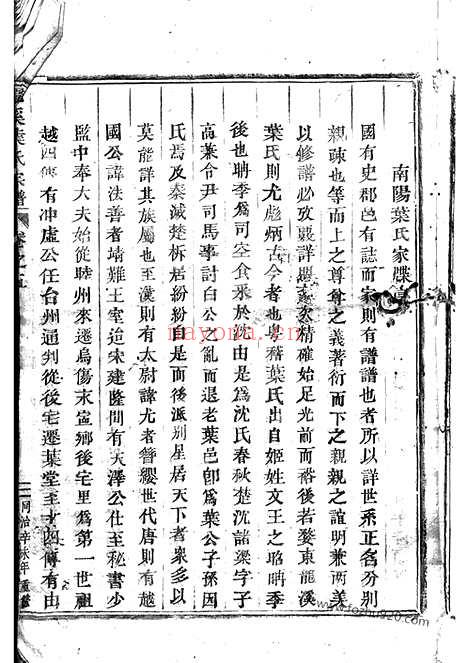 南陽葉氏家牒
國有史郡邑有誌而家則有譜譜也者所以詳世系正名分別
親疎也等而上之尊尊之義著衍而下之親親之誼明兼兩美
以修譜必攷覈詳精確始足光前而裕後若婺東龍溪
葉氏則尤彪炳古今者也粵稽葉氏出自姬姓文王之昭聃季
後也聃季爲司空食采於沈由是爲沈氏春秋楚沈諸梁字子
高葉令尹司馬事討白公之亂而退老葉邑卽爲葉公子孫因
氏焉及秦滅楚柝居紛紛自是而後派别星居天下者衆多以
莫能詳其族屬也至漢則有太尉諱尤者簪纓世代唐則有越
國公諱法善者靖難王室迨宋建隆間有天澤公仕至秘書少
監中奉大夫始從睦州來遷烏傷宣鄉後宅里爲第一世祖
越四傳有冲虛公任台州通判從後宅遷葉堂至十四傳有由
溪葉氏宗譜
同治辛未年重
nayona.cn
www.fozhu920.com